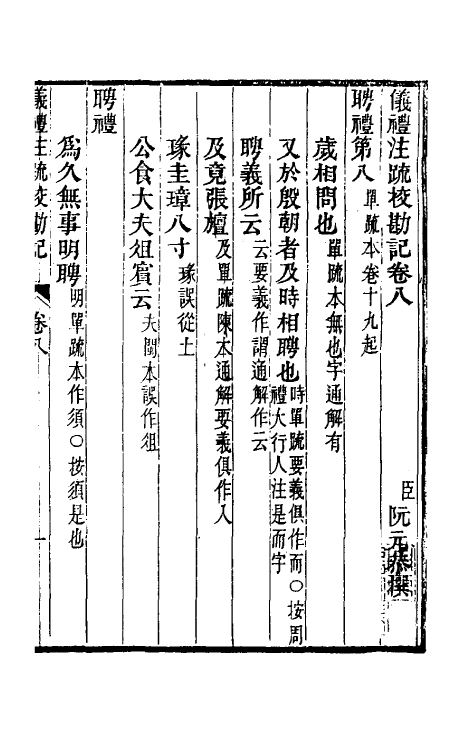 儀禮注疏校勘記卷八
臣阮元恭撰
聘禮第八 單疏本卷十九起
歲相問也 單疏本無也字通解有
又於殷朝者及時相聘也 時單疏要義俱作而○按周禮大行人注是而字
聘義所云 云要義作謂通解作云
及竟張旜 及單疏陳本通解要義俱作入
瑑圭璋八寸 瑑誤從土
公食大夫俎賓云 夫閩本誤作俎
聘禮
爲久無事明聘 明單疏本作須○按須是也
儀禮注疏校勘記 卷八 一